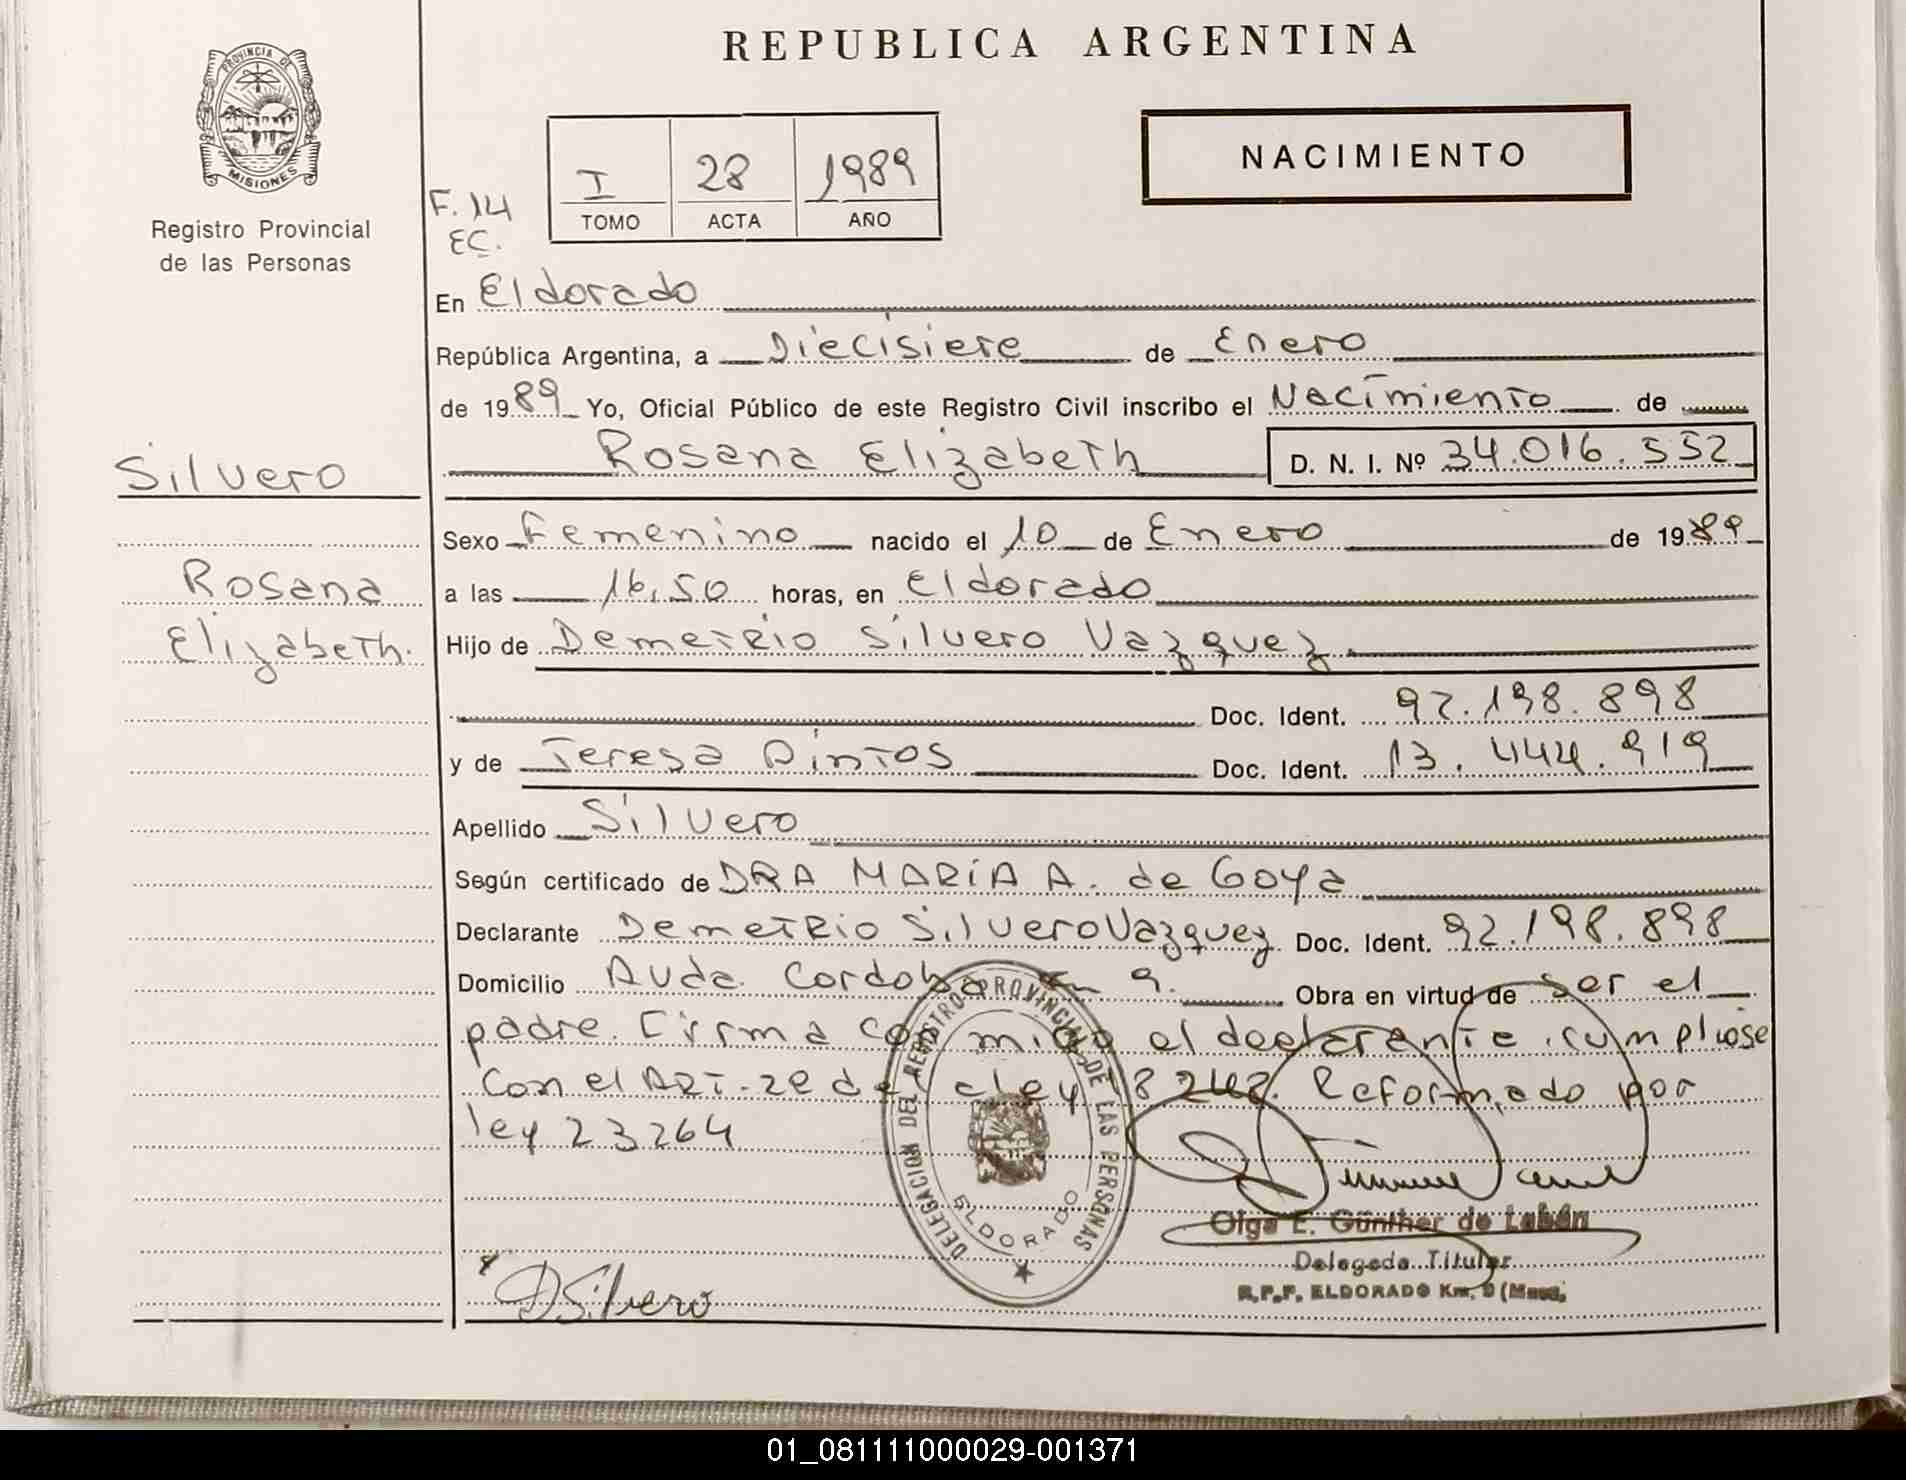 REPUBLICA ARGENTINA
PROVINCIA DE
MISIONES
Registro Provincial
de las Personas
F. 14
EC.
I 28 1989
TOMO ACTA AÑO
NACIMIENTO
En Eldorado
República Argentina, a Diecisiete de Enero
de 1989 Yo, Oficial Público de este Registro Civil inscribo el Nacimiento de
Rosana Elizabeth D. N. I. Nº 34.016.552
Silvero
Rosana
Elizabeth.
Sexo Femenino nacido el 10 de Enero de 1989
a las 16,50 horas, en Eldorado
Hijo de Demetrio Silvero Vazquez
Doc. Ident. 92.198.898
y de Teresa Pintos Doc. Ident. 13.444.919
Apellido Silvero
Según certificado de DRA MARÍA A. de Goya
Declarante Demetrio Silvero Vazquez Doc. Ident. 92.198.898
Domicilio Avda. Cordoba Km 9. Obra en virtud de ser el
padre. Firma con migo el declarante. cumpliose
con el ART. 2º de la ley 18248. Reformado por
ley 23264
DELEGACION DEL REGISTRO PROVINCIAL DE LAS PERSONAS
ELDORADO
Olga E. Günther de Labán
Delegada Titular
R.P.P. ELDORADO Km. 9 (Mnes.
D Silvero
01_081111000029-001371